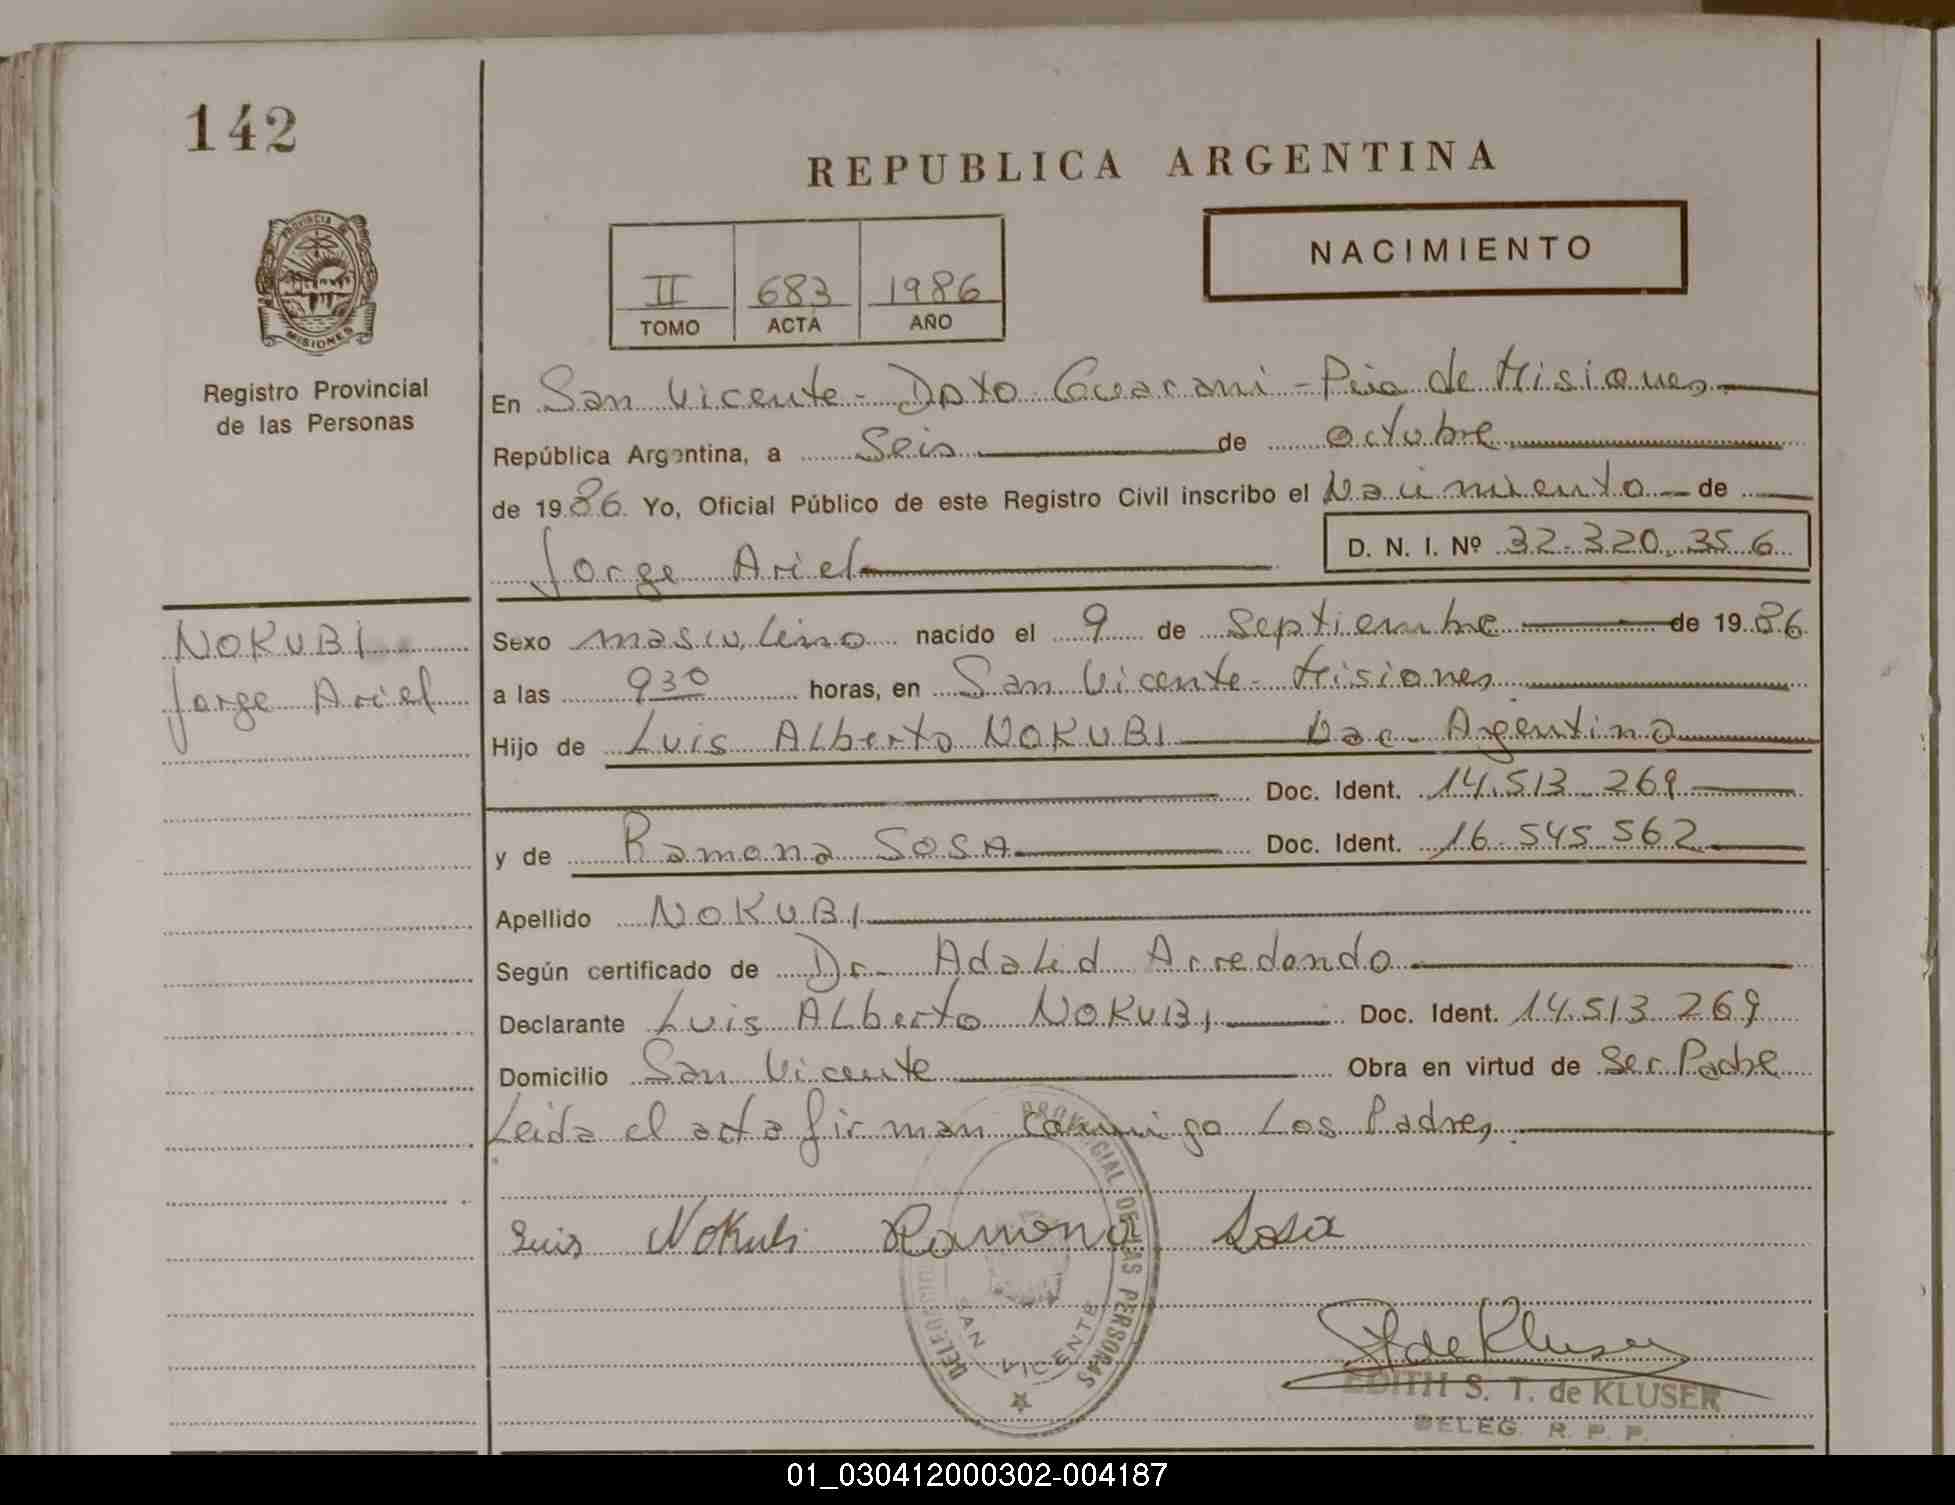 142
REPUBLICA ARGENTINA
PROVINCIA DE
MISIONES
Registro Provincial
de las Personas
II 683 1986
TOMO ACTA AÑO
NACIMIENTO
En San Vicente - Dpto Guarani - Pcia de Misiones
República Argentina, a Seis de octubre
de 1986 Yo, Oficial Público de este Registro Civil inscribo el Nacimiento de
Jorge Ariel
D. N. I. Nº 32.320.356
NOKUBI
Jorge Ariel
Sexo masculino nacido el 9 de Septiembre de 1986
a las 930 horas, en San Vicente - Misiones
Hijo de Luis ALberto NOKUBI Nac. Argentina
Doc. Ident. 14.513.269
y de Ramona SOSA Doc. Ident. 16.545.562
Apellido NOKUBI
Según certificado de Dr. Adalid Arredondo
Declarante Luis ALberto NOKUBI Doc. Ident. 14.513.269
Domicilio San Vicente Obra en virtud de Ser Padre
Leida el acta firman conmigo Los Padres
Luis Nokubi Ramona Sosa
PROVINCIAL DE LAS PERSONAS
SAN VICENTE
EDITH S. T. de KLUSER
DELEG. R. P. P.
01_030412000302-004187